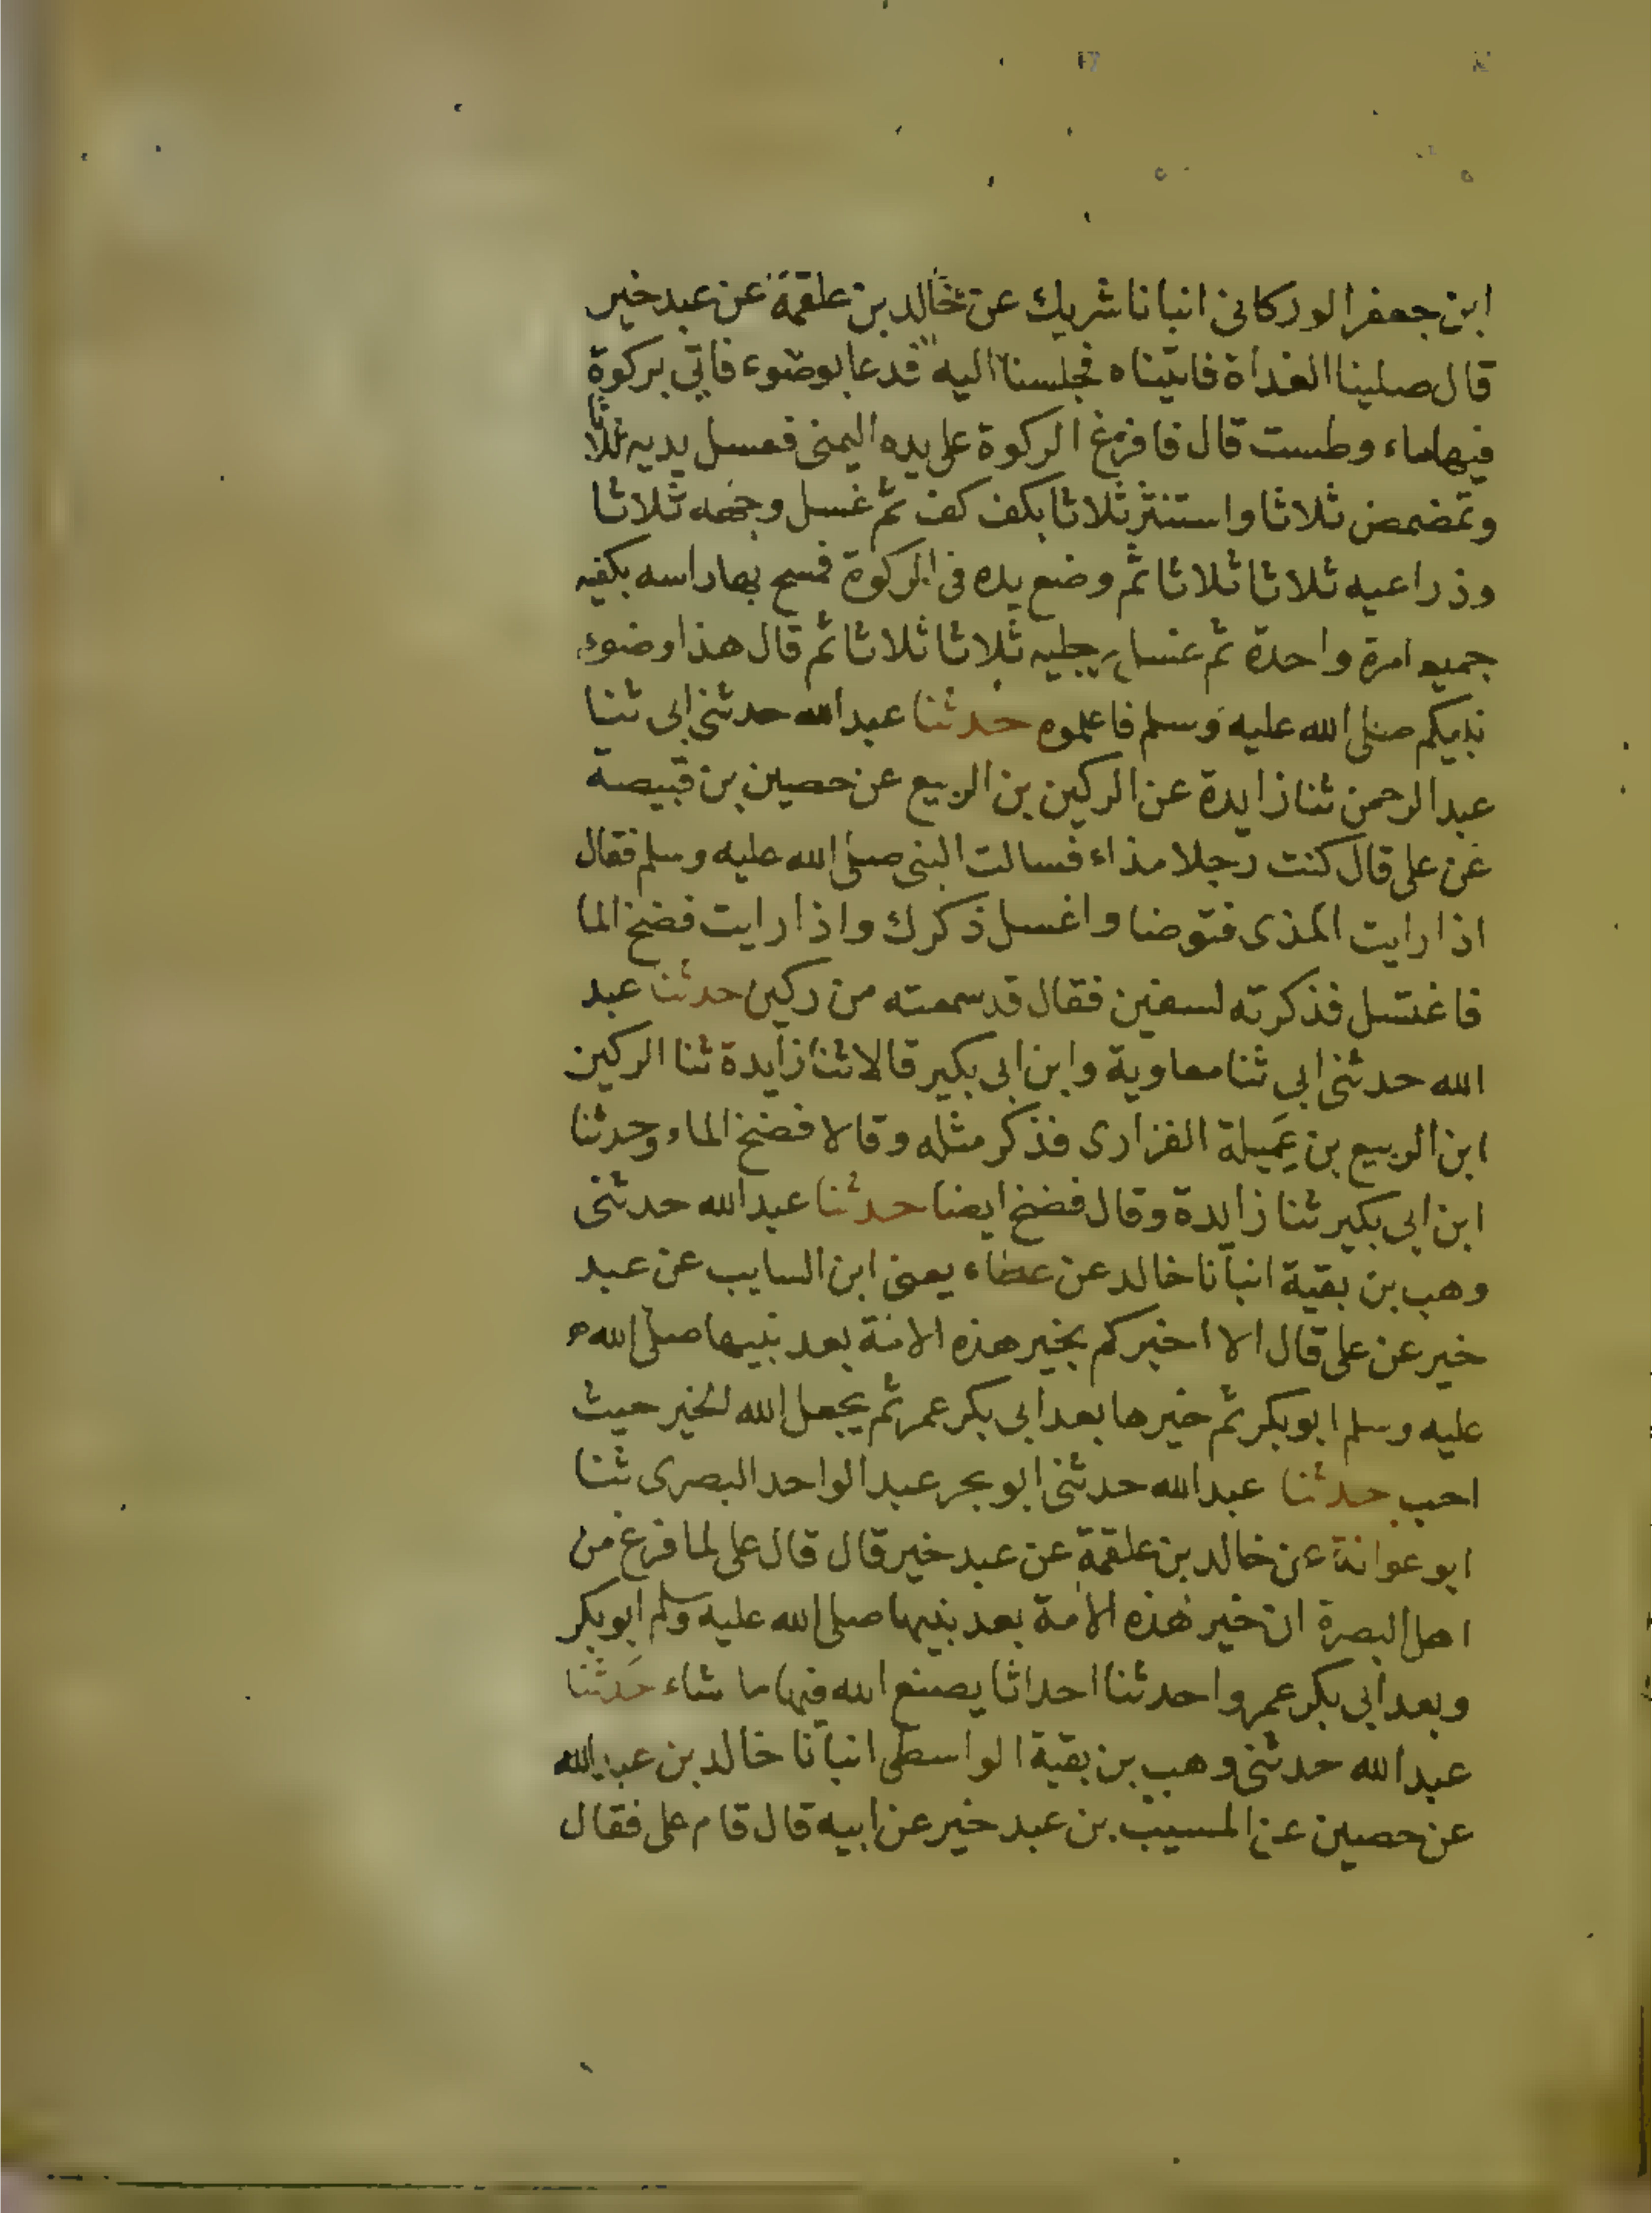 ابن جعفر الوركانى انبانا شريك عن خالد بن علقمة عن عبد خير
قال صلينا الغداة فاتيناه فجلسنا اليه فدعا بوضوء فاتي بركوة
فيها ماء وطست قال فافرغ الركوة على يده اليمنى فغسل يديه ثلاثا
وتمضمض ثلاثا واستنثر ثلاثا بكف كف ثم غسل وجهه ثلاثا
وذراعيه ثلاثا ثلاثا ثم وضع يده فى الركوة فمسح بها راسه بكفيه
جميعا مرة واحدة ثم غسل رجليه ثلاثا ثلاثا ثم قال هذا وضوء
نبيكم صلى الله عليه وسلم فاعلموه حدثنا عبد الله حدثنى ابى ثنا
عبد الرحمن ثنا زايدة عن الركين بن الربيع عن حصين بن قبيصة
عن على قال كنت رجلا مذاء فسالت النبى صلى الله عليه وسلم فقال
اذا رايت المذى فتوضا واغسل ذكرك واذا رايت فضخ الما
فاغتسل فذكرته لسفين فقال قد سمعته من ركين حدثنا عبد
الله حدثنى ابي ثنا معاوية وابن ابى بكير قالا ثنا زايدة ثنا الركين
ابن الربيع بن عميلة الفزارى فذكر مثله وقالا فضخ الماء وحدثنا
ابن ابى بكير ثنا زايدة وقال فضخ ايضا حدثنا عبد الله حدثنى
وهب بن بقية انبانا خالد عن عطاء يعنى ابن السايب عن عبد
خير عن على قال الا اخبركم بخير هذه الامة بعد نبيها صلى الله
عليه وسلم ابو بكر ثم خيرها بعد ابى بكر عمر ثم يجعل الله الخير حيث
احب حدثنا عبد الله حدثنى ابو بحر عبد الواحد البصرى ثنا
ابو عوانة عن خالد بن علقمة عن عبد خير قال قال على لما فرغ من
اهل البصرة ان خير هذه الامة بعد نبيها صلى الله عليه وسلم ابو بكر
وبعد ابى بكر عمر واحدثنا احداثا يصنع الله فيها ما شاء حدثنا
عبد الله حدثنى وهب بن بقية الواسطى انبانا خالد بن عبد الله
عن حصين عن المسيب بن عبد خير عن ابيه قال قام على فقال